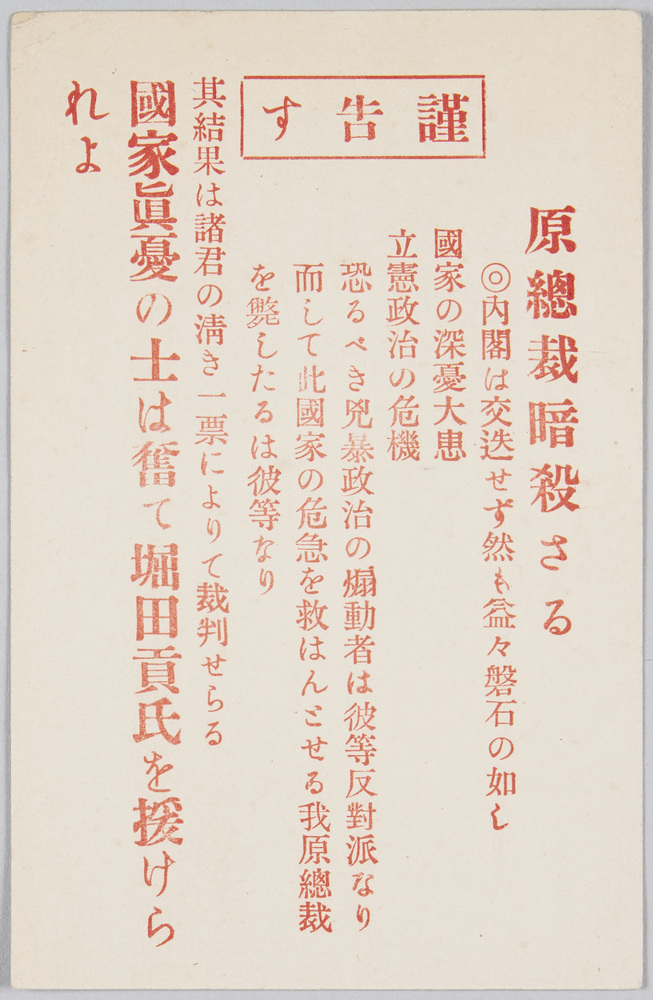 謹告す
原總裁暗殺さる
◎内閣は交迭せず然も益々磐石の如し
國家の深憂大患
立憲政治の危機
恐るべき兇暴政治の煽動者は彼等反對派なり
而して此國家の危急を救はんとせる我原總裁
を斃したるは彼等なり
其結果は諸君の淸き一票によりて裁判せらる
國家眞憂の士は奮て堀田貢氏を援けら
れよ